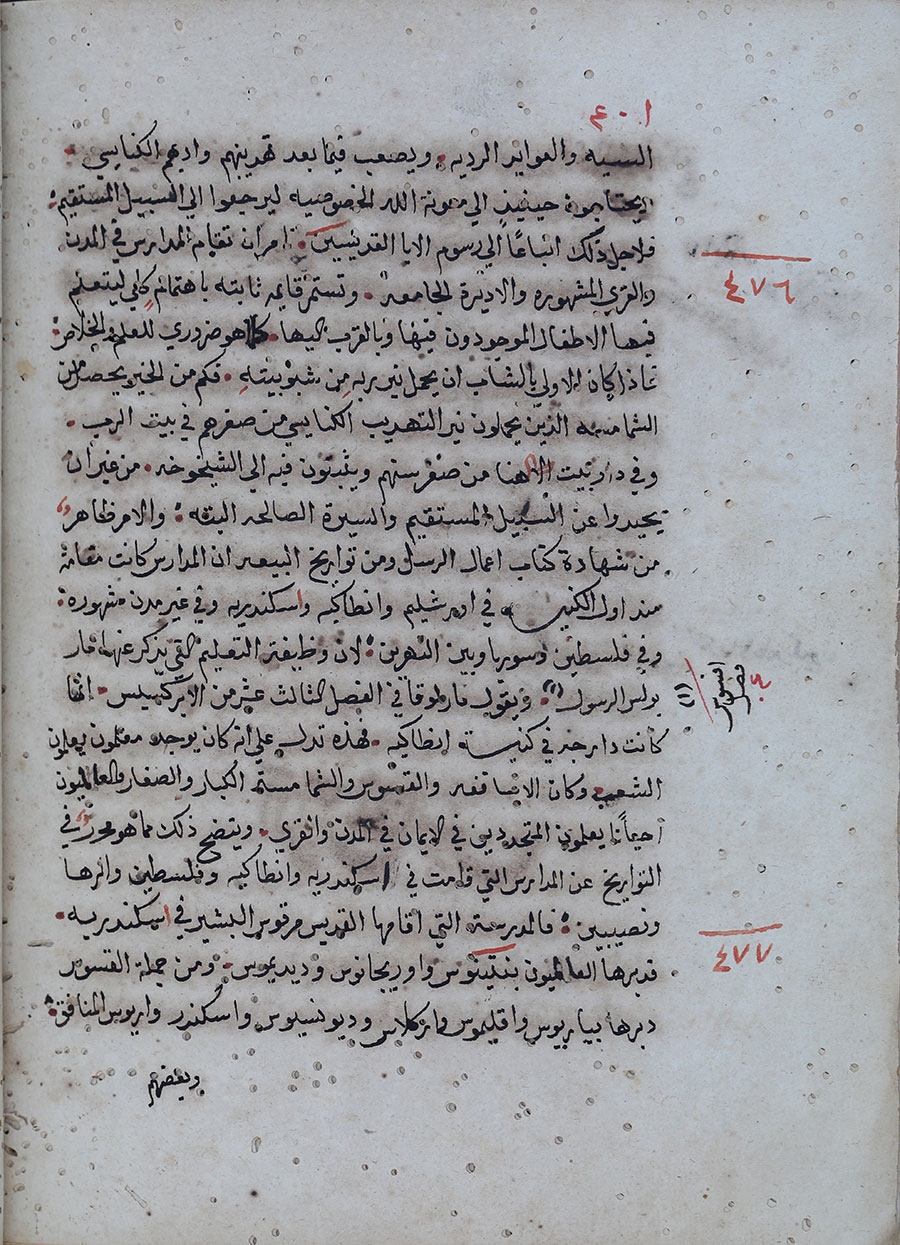 ٤٠١
السيه والعوايد الرديه. ويصعب فيما بعد تهذيبهم وادبهم الكنايسي.
حينيذٍ الي معونة الله الخصوصيه ليرجعوا الي السبيل المستقيم:
فلاجل ذلك اتباعًا الي رسوم الابا القديسين. امر ان تقام المدارس في المدن
٤٧٦
والقري المشهوره والاديرة الجامعه. وتستمر قايمه ثابته باهتمامٍ كلي ليتعلم
فيها الاطفال الموجودون فيها وبالقرب اليها. كما هو ضروري للعلم والخلاص:
فاذا كان الاولي بالشاب ان يحمل نير ربه من شبوبيته. فكم من الخير يحصل من
الشمامسه الذين يحملون نير التهديب الكنايسي من صغرهم في بيت الرب.
وفي دار بيت الهنا من صغر سنهم ويثبتون فيه الي الشيخوخه. من غير ان
يحيدوا عن السبيل المستقيم والسيرة الصالحه البته: والامر ظاهر
من شهادة كتاب اعمال الرسل ومن تواريخ البيعه ان المدارس كانت مقامة
منذ اول الكنيسه في اورشليم وانطاكيه واسكندريه وفي غير مدن مشهوره:
وفي فلسطين وسوريا وبين النهرين: لان وظيفة التعليم التي يذكر عنها مار
افسوس
فصل
٤
(١)
بولس الرسول (١) ويقول مار لوقا في الفصل الثالث عشر من الابركسيس. انها
كانت دارجه في كنيسة انطاكيه. فهذه تدل علي انه كان يوجد معلمون يعلمون
الشعب وكان الاساقفه والقسوس والشمامسه الكبار والصغار والعالميون
احيانًا يعلمون المتجددين في الايمان في المدن والقري. ويتضح ذلك مما هو محرر في
التواريخ عن المدارس التي قامت في اسكندريه وانطاكيه وفلسطين والرها
ونصيبين: فالمدرسة التي اقامها القديس مرقوس البشير في اسكندريه.
٤٧٧
قد دبرها العالميون بنتينوس واوريجانوس وديديموس. ومن جملة القسوس
دبرها بياريوس واقليموس واركلاس وديونسيوس واسكندر واريوس المنافق:
وبعضهم